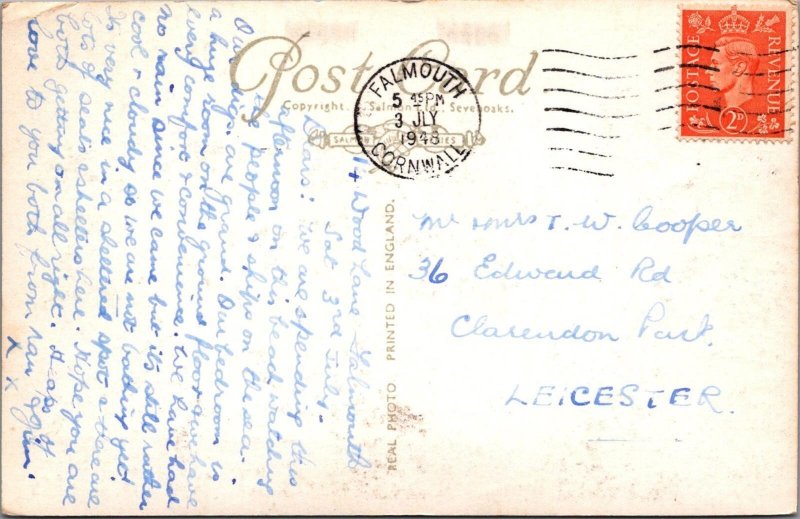 Post Card
Copyright. J. Salmon Ltd., Sevenoaks.
SALMON SERIES
FALMOUTH
5 45PM
3 JLY
1948
CORNWALL
POSTAGE
REVENUE
2D
REAL PHOTO PRINTED IN ENGLAND.
Wood Lane Falmouth
Sat 3rd July.
Dears! We are spending this
afternoon on this beach watching
the people & ships on the sea.
Our digs are grand. Our bedroom is
a huge room on the ground floor & we have
every comfort & convenience. We have had
no rain since we came but its still rather
cool & cloudy so we are not bathing yet
Its very nice in a sheltered spot & there are
lots of shelters here. Hope you are
both getting on all right. Heaps of
love to you both from
x x
Mr & Mrs T. W. Cooper
36 Edward Rd
Clarendon Park.
LEICESTER.